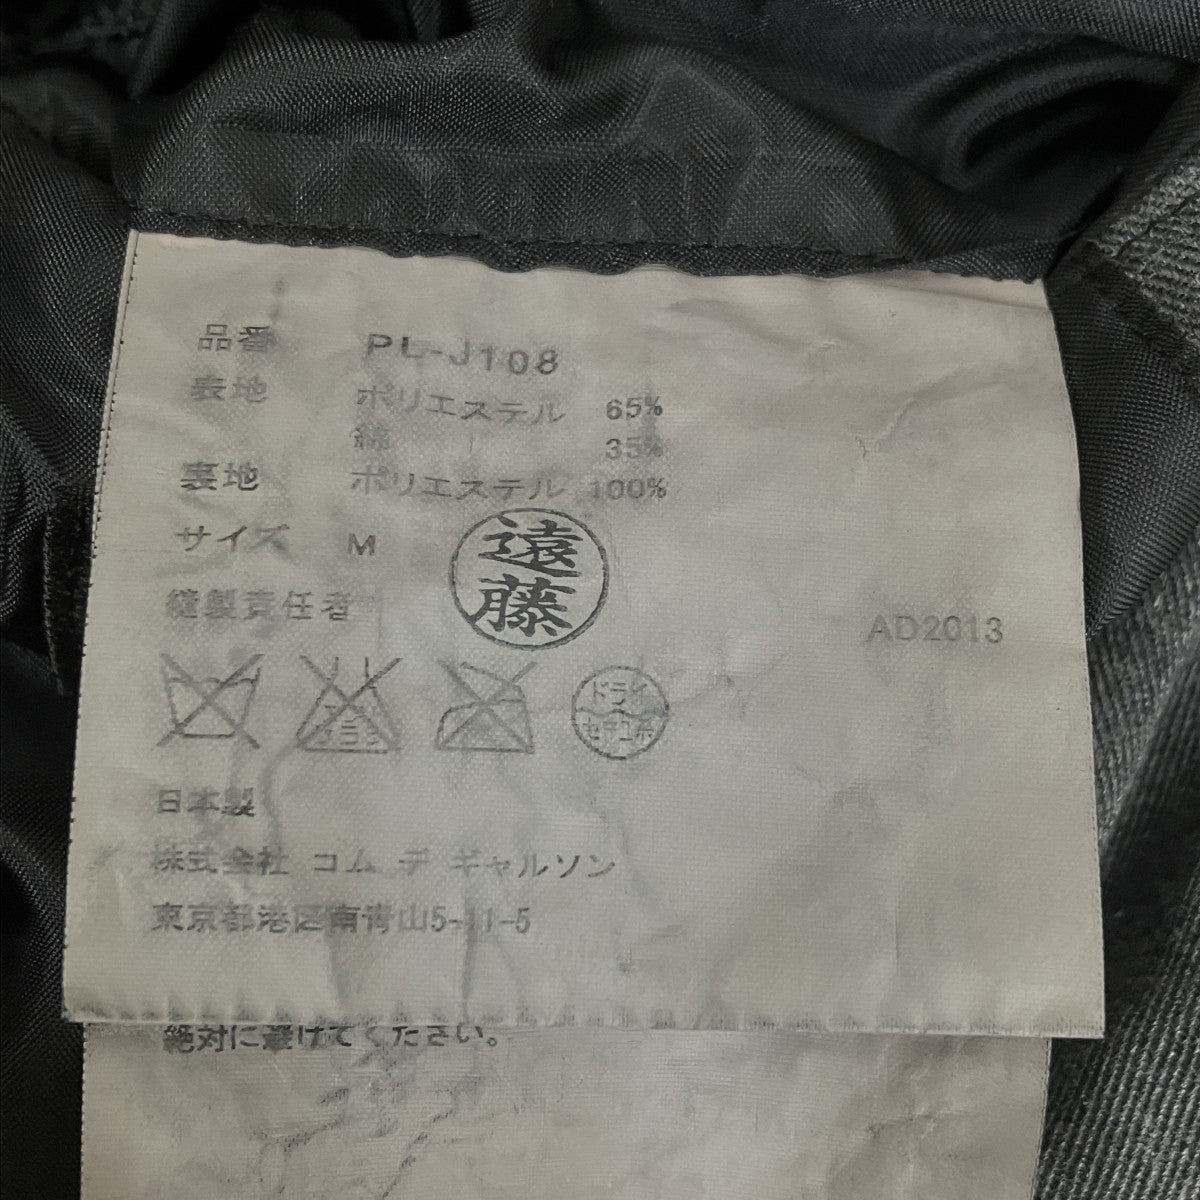 品番 PL-J108
表地 ポリエステル 65%
綿 35%
裏地 ポリエステル 100%
サイズ M
縫製責任者 遠藤
AD2013
ドライ
セキユ系
日本製
株式会社 コム デ ギャルソン
東京都港区南青山5-11-5
絶対に避けてください。